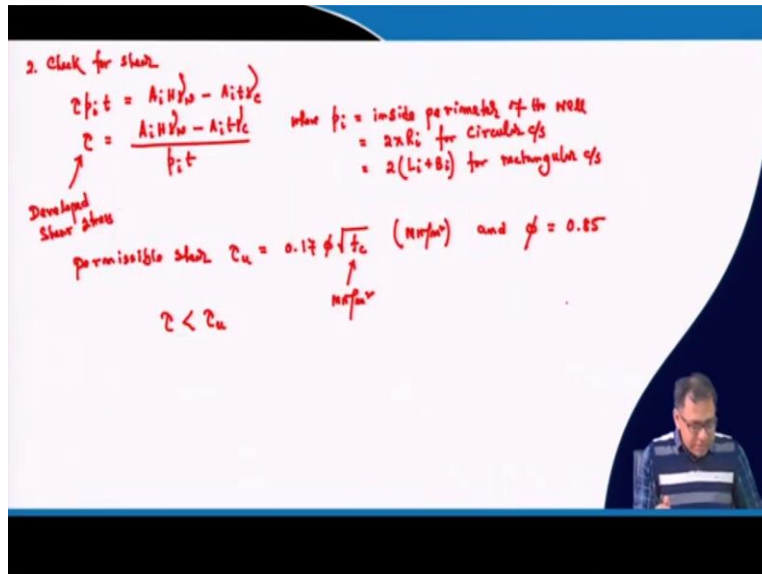 2. Check for shear
τ p_i t = A_i H γ_w - A_i t γ_c
τ = (A_i H γ_w - A_i t γ_c) / (p_i t)
where p_i = inside perimeter of the well
= 2πR_i for circular c/s
= 2(L_i + B_i) for rectangular c/s
Developed
Shear stress
permissible shear τ_u = 0.17 φ √f_c (MN/m²) and φ = 0.85
MN/m²
τ < τ_u